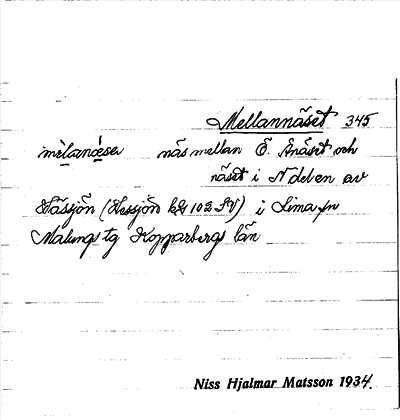 Mellannäset 345
mèlanǿse näs mellan Ö. Ånäset och
näset i N delen av
Håsjön (Hessjön kbl 102 SV) i Lima sn
Malungs tg Kopparbergs län
Niss Hjalmar Matsson 1934.